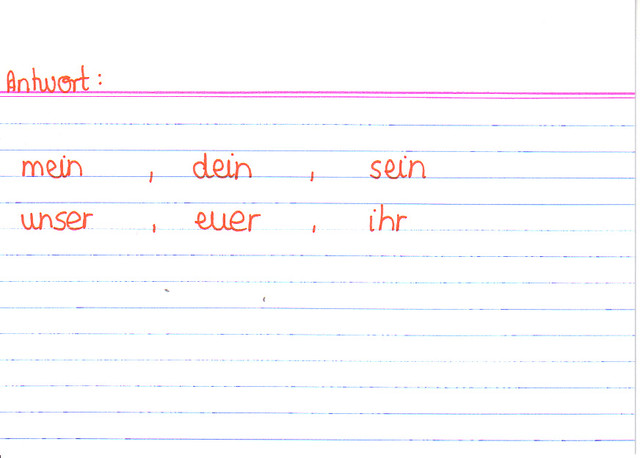 Antwort:
mein , dein , sein
unser , euer , ihr